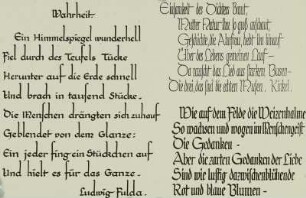 Wahrheit.
Ein Himmelspiegel wunderhell
Fiel durch des Teufels Tücke
Herunter auf die Erde schnell
Und brach in tausend Stücke.
Die Menschen drängten sich zuhauf
Geblendet von dem Glanze:
Ein jeder fing ein Stückchen auf
Und hielt es für das Ganze.
Ludwig Fulda.
Einsamkeit des Dichters Braut
Mutter Natur
Geschichte, die
Über des Lebens gemeinen Lauf
So rauscht das Lied aus starkem Busen
Die drei, das sind die echten Musen.
Wie auf dem Felde die Weizenhalme
So wachsen und wogen im Menschengeist
Die Gedanken -
Aber die zarten Gedanken der Liebe
Sind wie lustig dazwischenblühende
Rot und blaue Blumen -